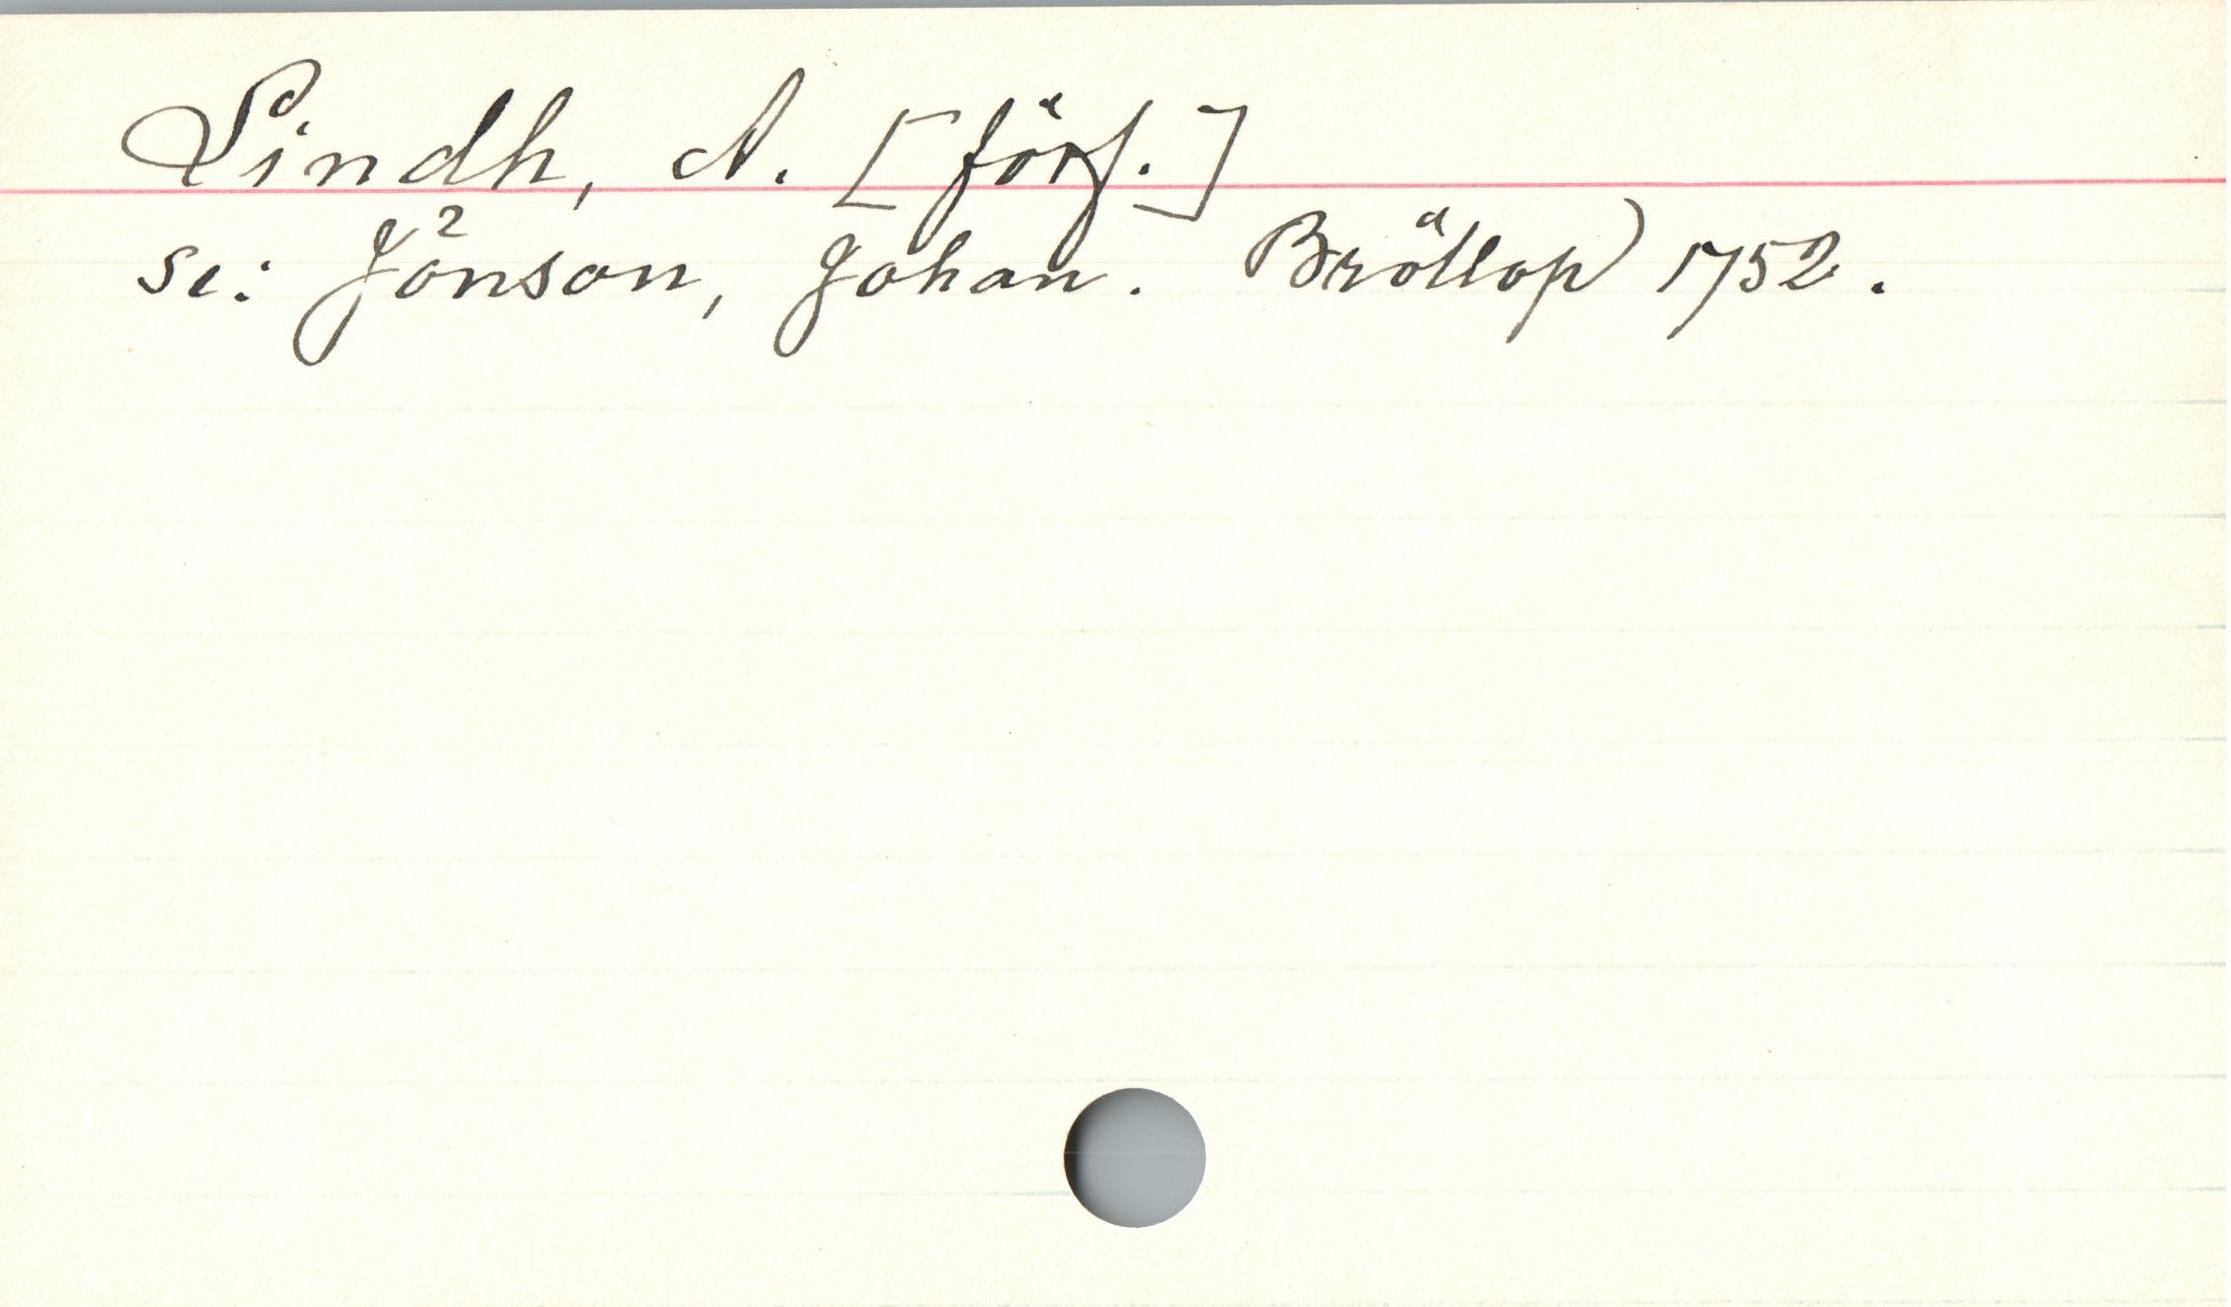 Lindh, A. [förf.]
se: Jönson, Johan. Bröllop 1752.